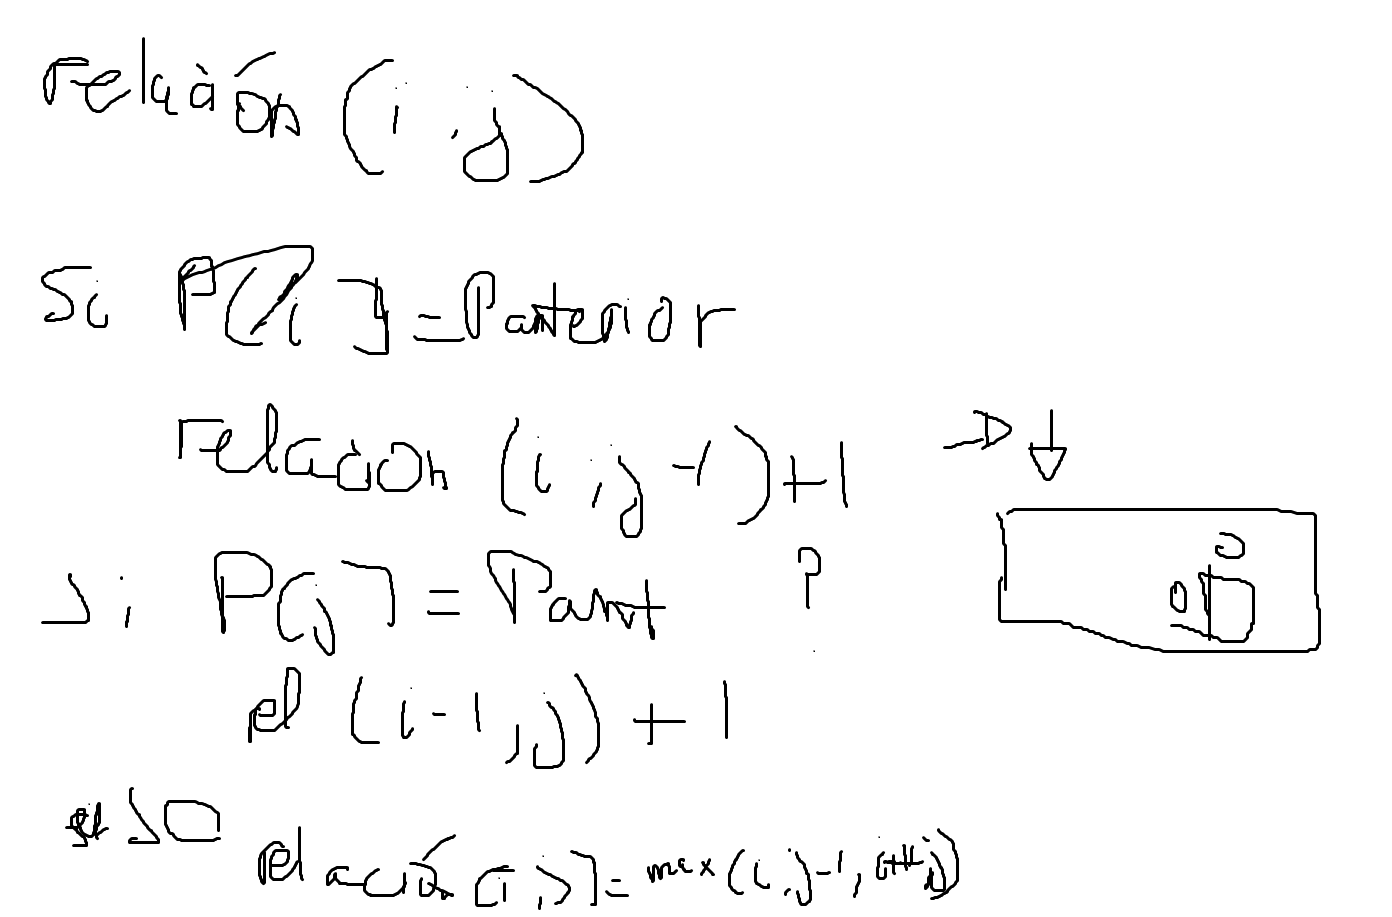 relación (i, j)
Si P[i] = Panterior
relación (i, j-1)+1
Si P[j] = Pant ?
rel (i-1, j) + 1
relación [i, j] = max (i, j-1,